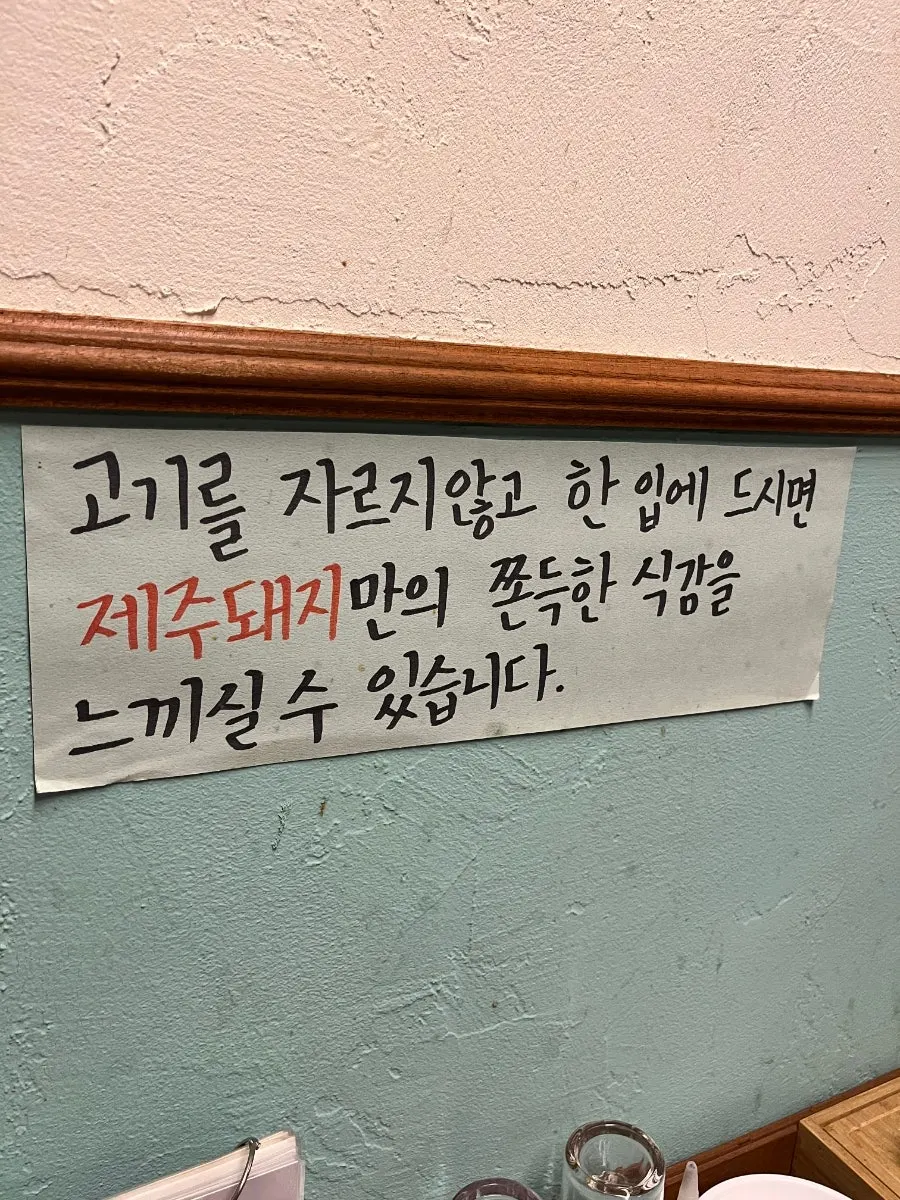 고기를 자르지않고 한 입에 드시면
제주돼지만의 쫀득한 식감을
느끼실 수 있습니다.